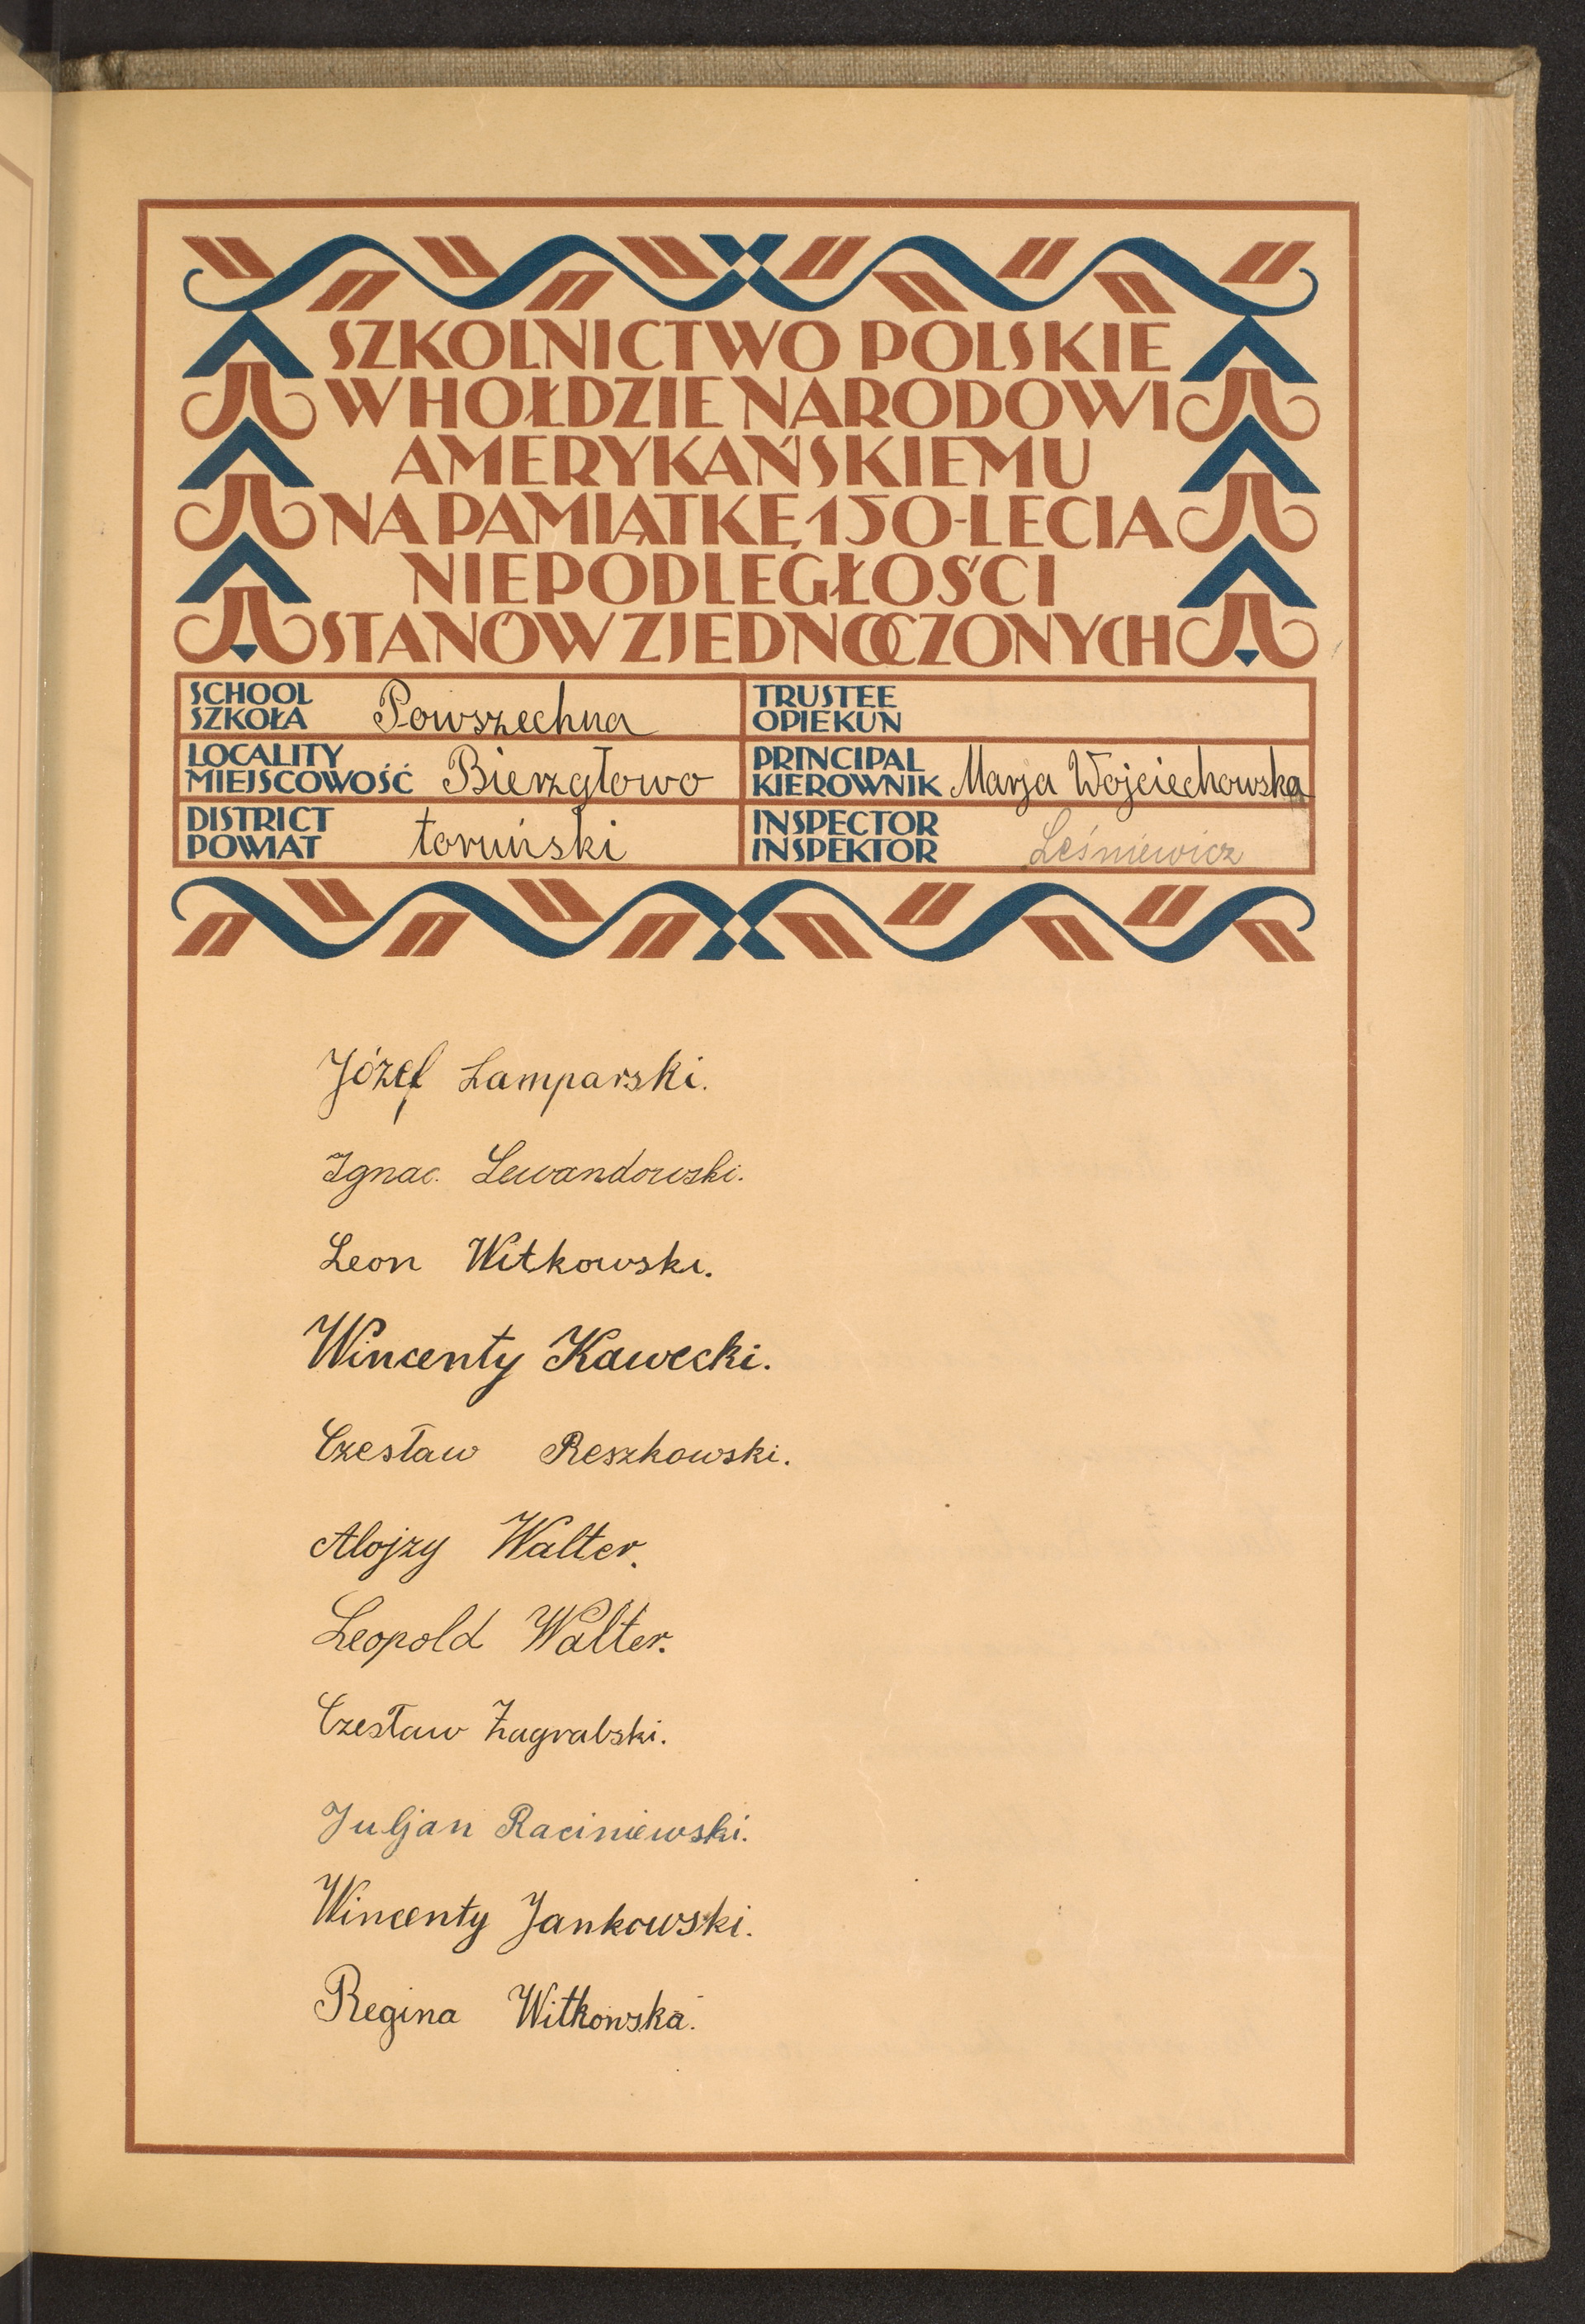 SZKOLNICTWO POLSKIE
W HOŁDZIE NARODOWI
AMERYKAŃSKIEMU
NA PAMIĄTKĘ 150-LECIA
NIEPODLEGŁOŚCI
STANÓW ZJEDNOCZONYCH
SCHOOL
SZKOŁA Powszechna
TRUSTEE
OPIEKUN
LOCALITY
MIEJSCOWOŚĆ Bierzgłowo
PRINCIPAL
KIEROWNIK Marja Wojciechowska
DISTRICT
POWIAT toruński
INSPECTOR
INSPEKTOR Leśniewicz
Józef Lamparski.
Ignac. Lewandowski.
Leon Witkowski.
Wincenty Kawecki.
Czesław Reszkowski.
Alojzy Walter.
Leopold Walter.
Czesław Zagrabski.
Juljan Raciniewski.
Wincenty Jankowski.
Regina Witkowska.